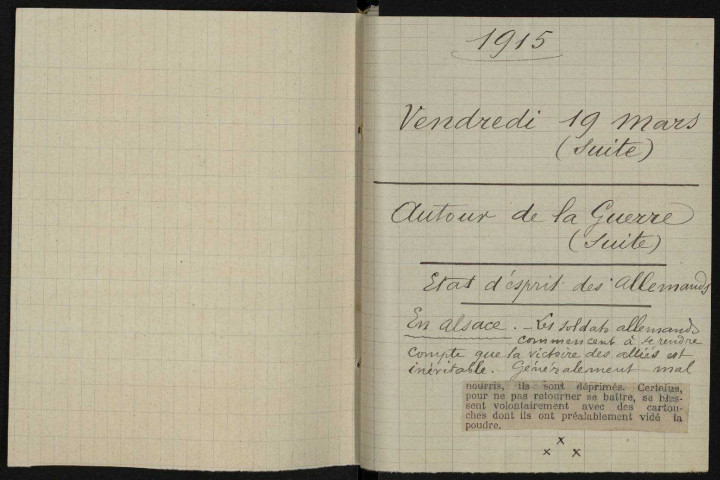 1915
Vendredi 19 mars
(suite)
Autour de la Guerre
(suite)
Etat d'esprit des Allemands
En Alsace. - Les soldats allemands
commencent à se rendre
compte que la victoire des alliés est
inévitable. Généralement mal
nourris, ils sont déprimés. Certains,
pour ne pas retourner se battre, se bles-
sent volontairement avec des cartou-
ches dont ils ont préalablement vidé la
poudre.
x
x x